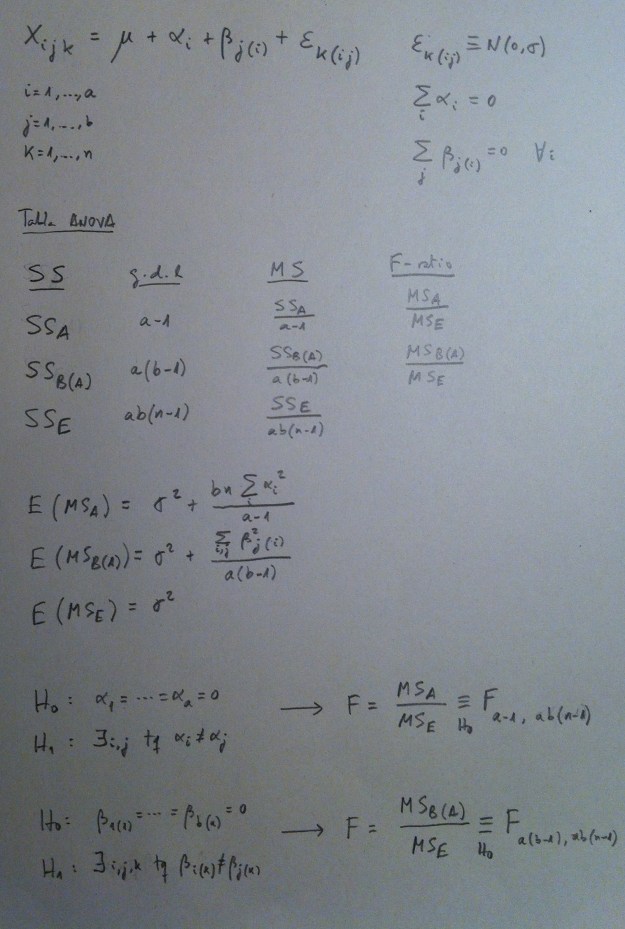 X_{ijk} = μ + α_i + β_{j(i)} + ε_{k(ij)}   ε_{k(ij)} ≡ N(0,σ)
i=1,...,a   Σ_i α_i = 0
j=1,...,b
K=1,...,n   Σ_j β_{j(i)} = 0 ∀i
Tabla ANOVA
SS   g.d.l   MS   F-ratio
SS_A   a-1   SS_A/(a-1)   MS_A/MS_E
SS_{B(A)}   a(b-1)   SS_{B(A)}/(a(b-1))   MS_{B(A)}/MS_E
SS_E   ab(n-1)   SS_E/(ab(n-1))
E(MS_A) = σ² + (bn Σ_i α_i²)/(a-1)
E(MS_{B(A)}) = σ² + (Σ_{i,j} β²_{j(i)})/(a(b-1))
E(MS_E) = σ²
H_0: α_1=...=α_a=0 → F = MS_A/MS_E ≡_{H_0} F_{a-1, ab(n-1)}
H_1: ∃i,j tq α_i≠α_j
H_0: β_{1(1)}=...=β_{b(a)}=0 → F = MS_{B(A)}/MS_E ≡_{H_0} F_{a(b-1), ab(n-1)}
H_1: ∃i,j,k tq β_{i(k)}≠β_{j(k)}